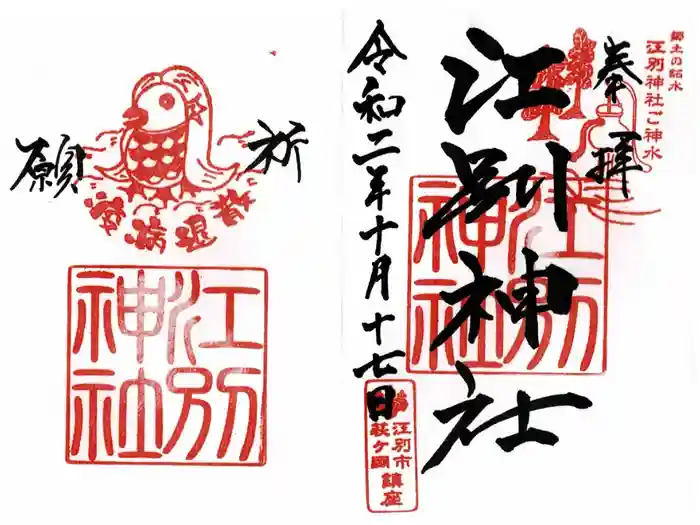 郷土の銘水
江別神社ご神水
奉拝
江別神社
江別神社
令和二年十月十七日
江別市
萩ケ岡
鎮座
祈
願
疫病退散
江別
神社